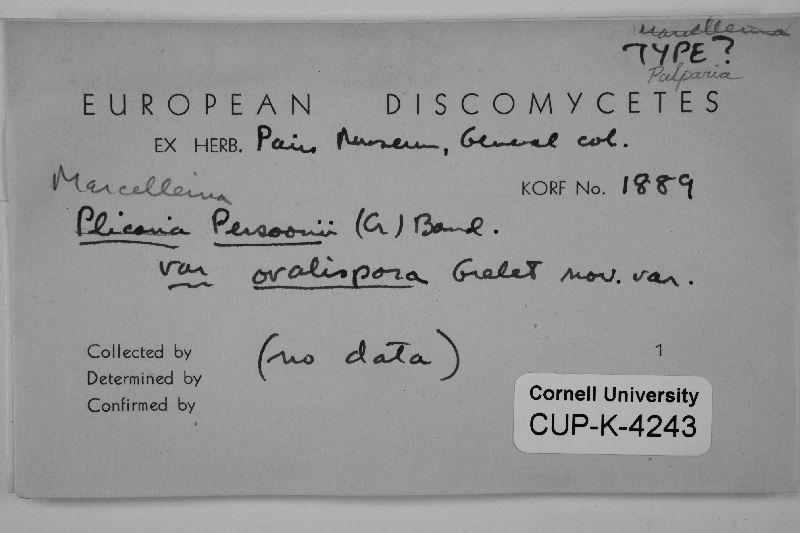 Marcelleina
TYPE?
Pulparia
EUROPEAN DISCOMYCETES
EX HERB. Paris Museum, General col.
Marcelleina
KORF No. 1889
Plicaria Persoonii (Cr.) Boud.
var ovalispora Grelet nov. var.
Collected by (no data) 1
Determined by
Confirmed by
Cornell University
CUP-K-4243